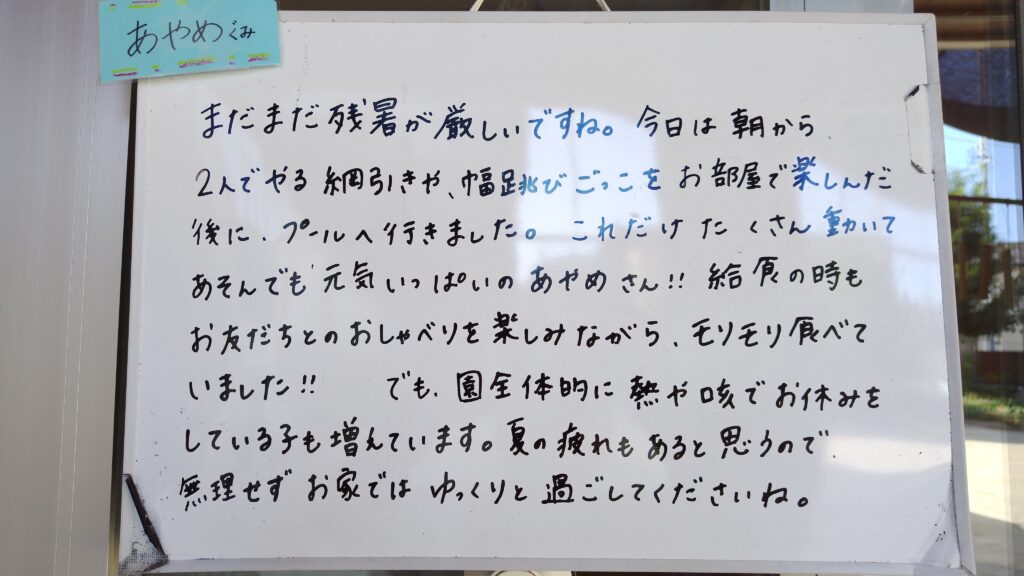 あやめぐみ
まだまだ残暑が厳しいですね。今日は朝から、
2人でやる綱引きや、幅跳びごっこをお部屋で楽しんだ
後に、プールへ行きました。これだけたくさん動いて
あそんでも元気いっぱいのあやめさん!! 給食の時も
お友だちとのおしゃべりを楽しみながら、モリモリ食べて
いました!! でも、園全体的に熱や咳でお休みを
している子も増えています。夏の疲れもあると思うので、
無理せずお家ではゆっくりと過ごしてくださいね。